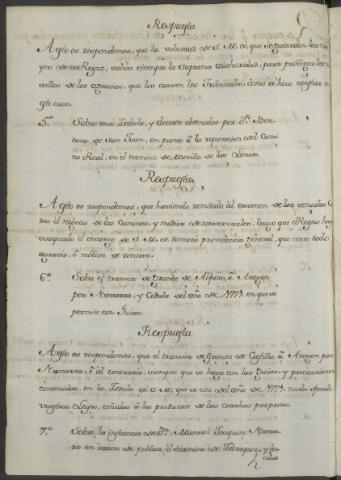 Respuesta
A esto os respondemos, que la voluntad de S. M. es, que se guarden las Le
yes de ese Reyno, salva siempre la suprema authoridad, para proteger los va
sallos de los agravios, que les causen los Tribunales, como se hizo constar en
este caso.
5.º Sobre una Zedula, y decreto obtenidos por Dⁿ.
de San Juan, en punto á la reparacion del Cami
no Real, en el termino de Murillo de las Limas.
Respuesta
A esto os respondemos, que haviendo remitido al examen de las actuales Cor
tes el negocio de los Caminos, y medios de conservarlos, luego que el Reyno haya
evaquado el encargo de S. M. se tomará providencia general, que corte todo
agravio, ó motivo de recurso.
6.º Sobre el transito de Granos de Alfaro, á Aragon
por Navarra, y Cedula del año de 1778. en que se
permite con Guias.
Respuesta
A esto os respondemos, que el transito de Granos de Castilla á Aragon por
Navarra, ó al contrario, siempre que se haga con las Guias, y precauciones
contenidas, en la Zedula de S. M. que se cita del año de 1778, nada ofende
vuestras Leyes, ceñidas á los productos de las cosechas propias.
7.º Sobre la instancia de Dⁿ. Manuel Joaquin Navar
ro en razon de poblar el termino de y ha